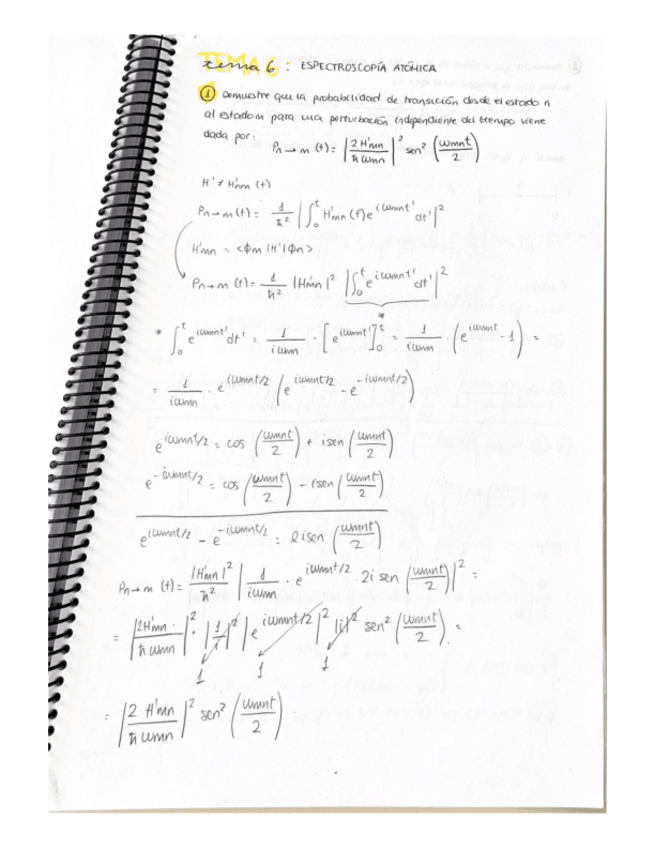 TEMA 6
tema 6 : ESPECTROSCOPÍA ATÓMICA
① Demuestre que la probabilidad de transición desde el estado n
al estado m para una perturbación independiente del tiempo viene
dada por: Pn→m (t) = |2 H'mn / ħ ωmn|² sen² (ωmnt / 2)
H' ≠ H'mn (t)
Pn→m (t) = 1/ħ² |∫₀ᵗ H'mn (t) e^(iωmnt') dt'|²
H'mn = <φm |H'| φn>
Pn→m (t) = 1/ħ² |H'mn|² |∫₀ᵗ e^(iωmnt') dt'|²
*
* ∫₀ᵗ e^(iωmnt') dt' = 1/(iωmn) · [e^(iωmnt')]₀ᵗ = 1/(iωmn) · (e^(iωmnt) - 1) =
= 1/(iωmn) · e^(iωmnt/2) (e^(iωmnt/2) - e^(-iωmnt/2))
e^(iωmnt/2) = cos (ωmnt / 2) + i sen (ωmnt / 2)
e^(-iωmnt/2) = cos (ωmnt / 2) - i sen (ωmnt / 2)
e^(iωmnt/2) - e^(-iωmnt/2) = 2 i sen (ωmnt / 2)
Pn→m (t) = |H'mn|²/ħ² |1/(iωmn) · e^(iωmnt/2) · 2i sen (ωmnt / 2)|² =
= |2H'mn · / ħ ωmn|² · |1/i|² |e^(iωmnt/2)|² |i|² sen² (ωmnt / 2) =
1 1 1
= |2 H'mn / ħ ωmn|² sen² (ωmnt / 2)